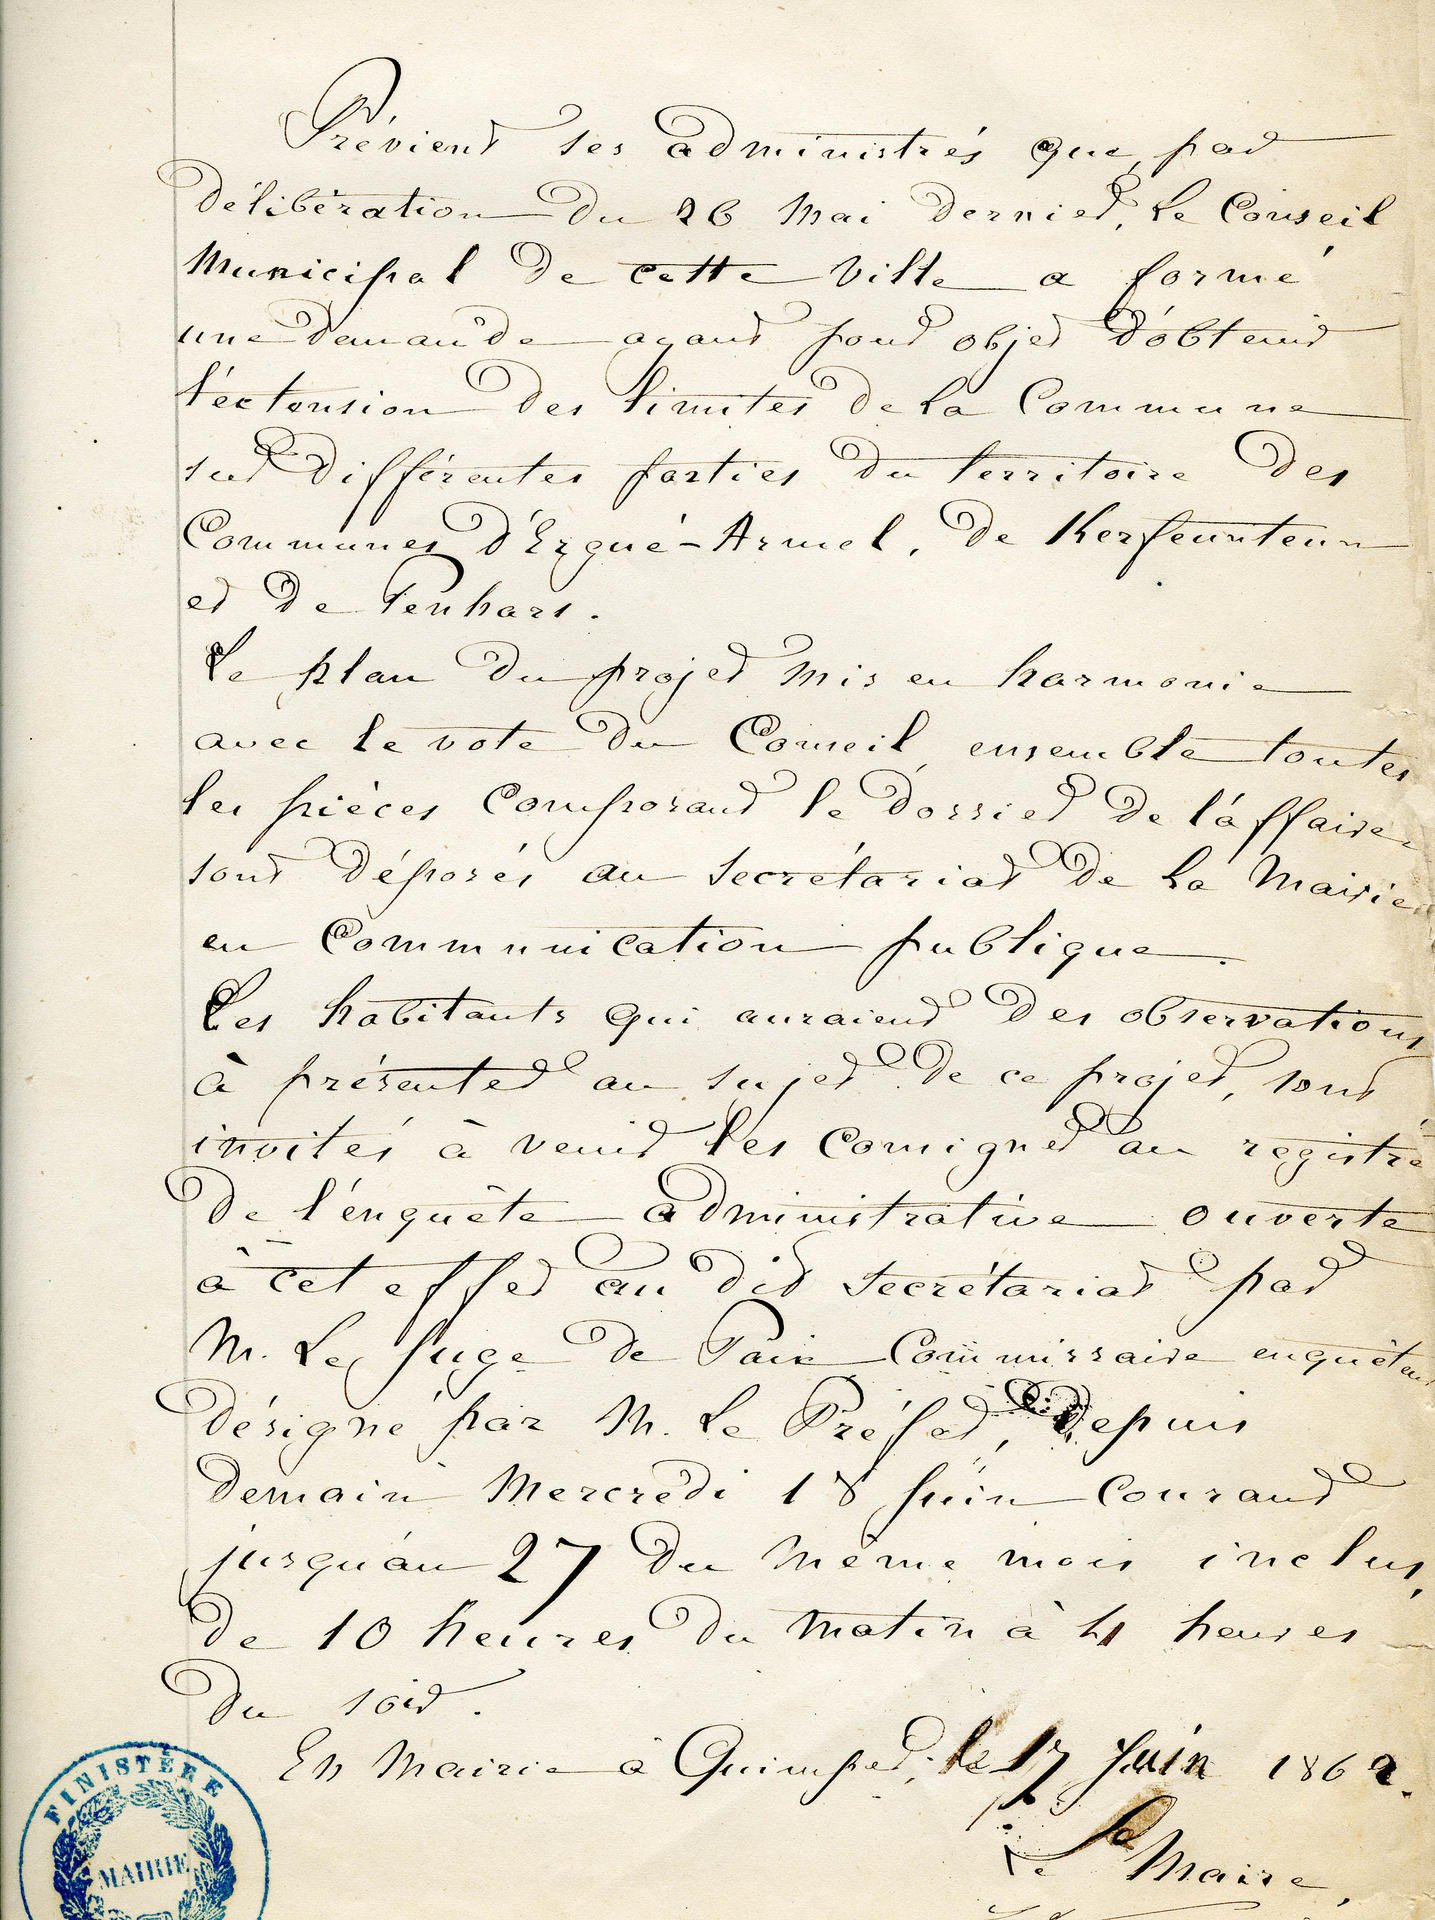 Prévient ses administrés que, par
délibération du 26 Mai dernier, le Conseil
Municipal de cette Ville a formé
une demande ayant pour objet d'obtenir
l'extension des limites de la Commune
sur différentes parties du territoire des
Communes d'Ergué-Armel, de Kerfeunteun
et de Penhars.
Le plan du projet mis en harmonie
avec le vote du Conseil, ensemble toutes
les pièces composant le dossier de l'affaire
sont déposés au secrétariat de la Mairie
en Communication publique.
Les habitants qui auraient des observations
à présenter au sujet de ce projet, sont
invités à venir les consigner au registre
de l'enquête administrative ouverte
à cet effet au dit secrétariat par
M. Le Juge de Paix Commissaire enquêteur
désigné par M. Le Préfet, depuis
demain Mercredi 18 Juin courant
jusqu'au 27 du même mois inclus,
de 10 heures du matin à 4 heures
du soir.
En Mairie à Quimper, le 17 Juin 1862.
Le Maire,
FINISTÈRE
MAIRIE